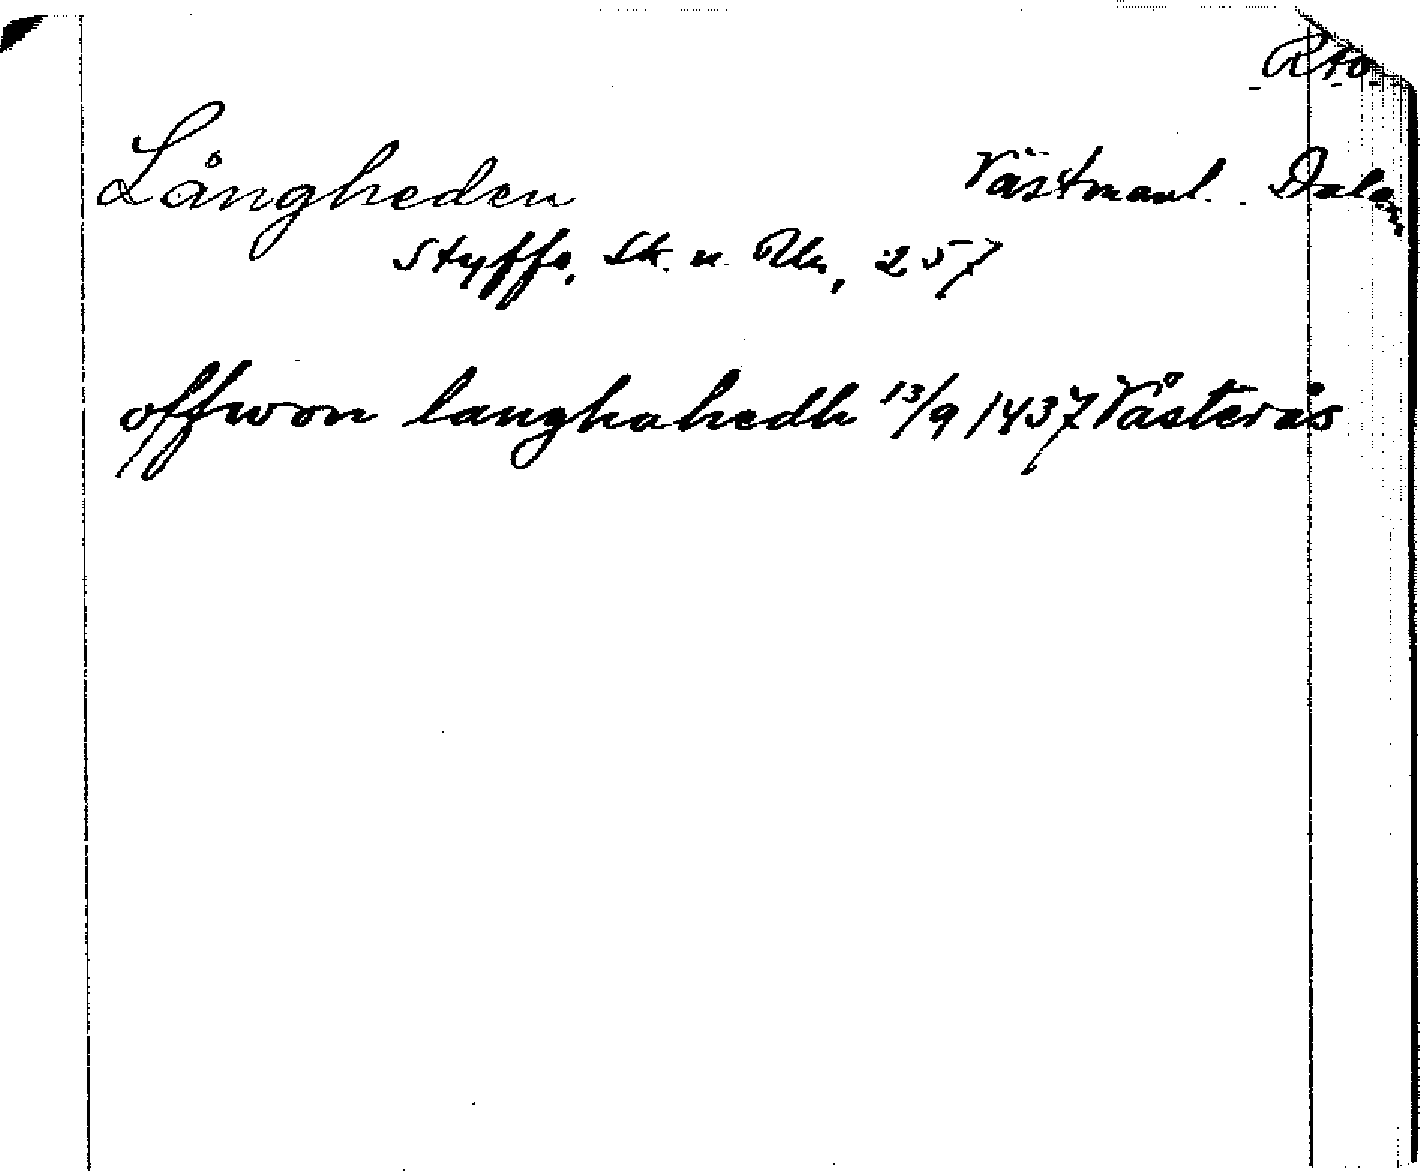 Rto.
Långheden Västmanl. Dalar
Styffe, Sk. u. Un, 257
offwon langhahedh 13/9 1437 Västerås